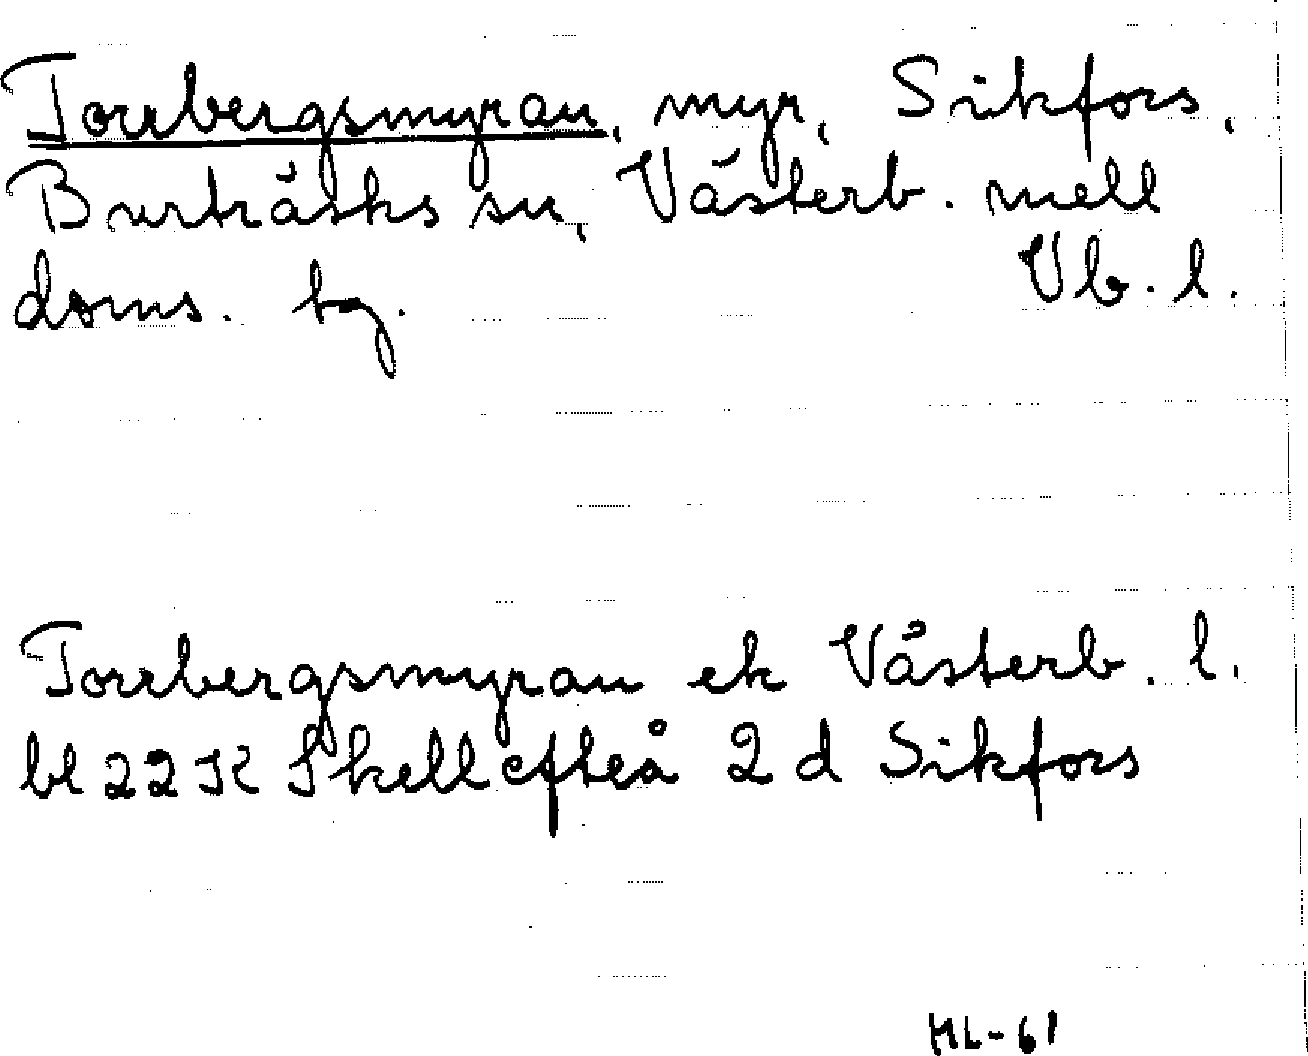 Torrbergsmyran, myr, Sikfors,
Burträsks sn, Västerb. mell
doms. tg. Vb. l.
Torrbergsmyran ek Västerb. l.
bl 22K Skellefteå 2 d Sikfors
HL-61